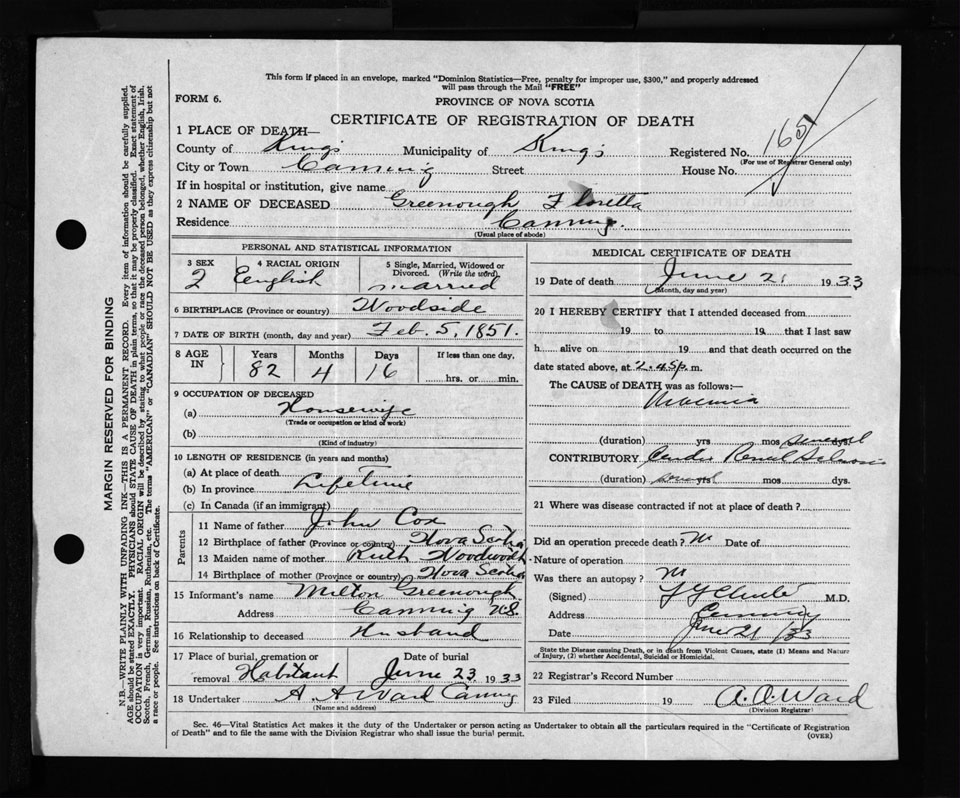 This form if placed in an envelope, marked "Dominion Statistics—Free, penalty for improper use, $300," and properly addressed
will pass through the Mail "FREE"
FORM 6.
PROVINCE OF NOVA SCOTIA
CERTIFICATE OF REGISTRATION OF DEATH
1 PLACE OF DEATH—
County of Kings Municipality of Kings Registered No.
(For use of Registrar General only)
City or Town Canning Street House No.
If in hospital or institution, give name
2 NAME OF DECEASED Greenough Floretta
Residence Canning.
(Usual place of abode)
PERSONAL AND STATISTICAL INFORMATION
3 SEX 4 RACIAL ORIGIN 5 Single, Married, Widowed or Divorced. (Write the word)
2 English married
6 BIRTHPLACE (Province or country) Woodside
7 DATE OF BIRTH (month, day and year) Feb. 5, 1851.
8 AGE IN Years Months Days If less than one day,
82 4 16 hrs. or min.
9 OCCUPATION OF DECEASED
(a) Housewife
(Trade or occupation or kind of work)
(b)
(Kind of industry)
10 LENGTH OF RESIDENCE (in years and months)
(a) At place of death
(b) In province Lifetime
(c) In Canada (if an immigrant)
Parents
11 Name of father John Cox
12 Birthplace of father (Province or country) Nova Scotia
13 Maiden name of mother Ruth Woodworth
14 Birthplace of mother (Province or country) Nova Scotia
15 Informant's name Milton Greenough
Address Canning N.S.
16 Relationship to deceased Husband
17 Place of burial, cremation or removal Habitant Date of burial June 23 1933
18 Undertaker A. A Ward Canning
(Name and address)
MEDICAL CERTIFICATE OF DEATH
19 Date of death June 21 1933
(Month, day and year)
20 I HEREBY CERTIFY that I attended deceased from
19 to 19 that I last saw
h alive on 19 and that death occurred on the
date stated above, at 2.45 p. m.
The CAUSE of DEATH was as follows:—
Uraemia
(duration) yrs mos dys.
CONTRIBUTORY Cardio Renal Sclerosis
(duration) yrs mos dys.
21 Where was disease contracted if not at place of death?
Did an operation precede death? Date of
Nature of operation
Was there an autopsy?
(Signed) M.D.
Address Canning
Date June 21/33
State the Disease causing Death, or in death from Violent Causes, state (1) Means and Nature
of Injury, (2) whether Accidental, Suicidal or Homicidal.
22 Registrar's Record Number
23 Filed 19 A.O. Ward
(Division Registrar)
Sec. 46—Vital Statistics Act makes it the duty of the Undertaker or person acting as Undertaker to obtain all the particulars required in the "Certificate of Registration
of Death" and to file the same with the Division Registrar who shall issue the burial permit.
(OVER)
MARGIN RESERVED FOR BINDING
N.B.—WRITE PLAINLY WITH UNFADING INK—THIS IS A PERMANENT RECORD. Every item of information should be carefully supplied.
AGE should be stated EXACTLY. PHYSICIANS should STATE CAUSE OF DEATH in plain terms, so that it may be properly classified. Exact statement of
OCCUPATION is very important. RACIAL ORIGIN will be described by stating to what people or race the deceased person belonged, whether English, Irish,
Scotch, French, German, Russian, Ruthenian, etc. The terms "AMERICAN" or "CANADIAN" SHOULD NOT BE USED as they express citizenship but not
a race or people. See instructions on back of Certificate.